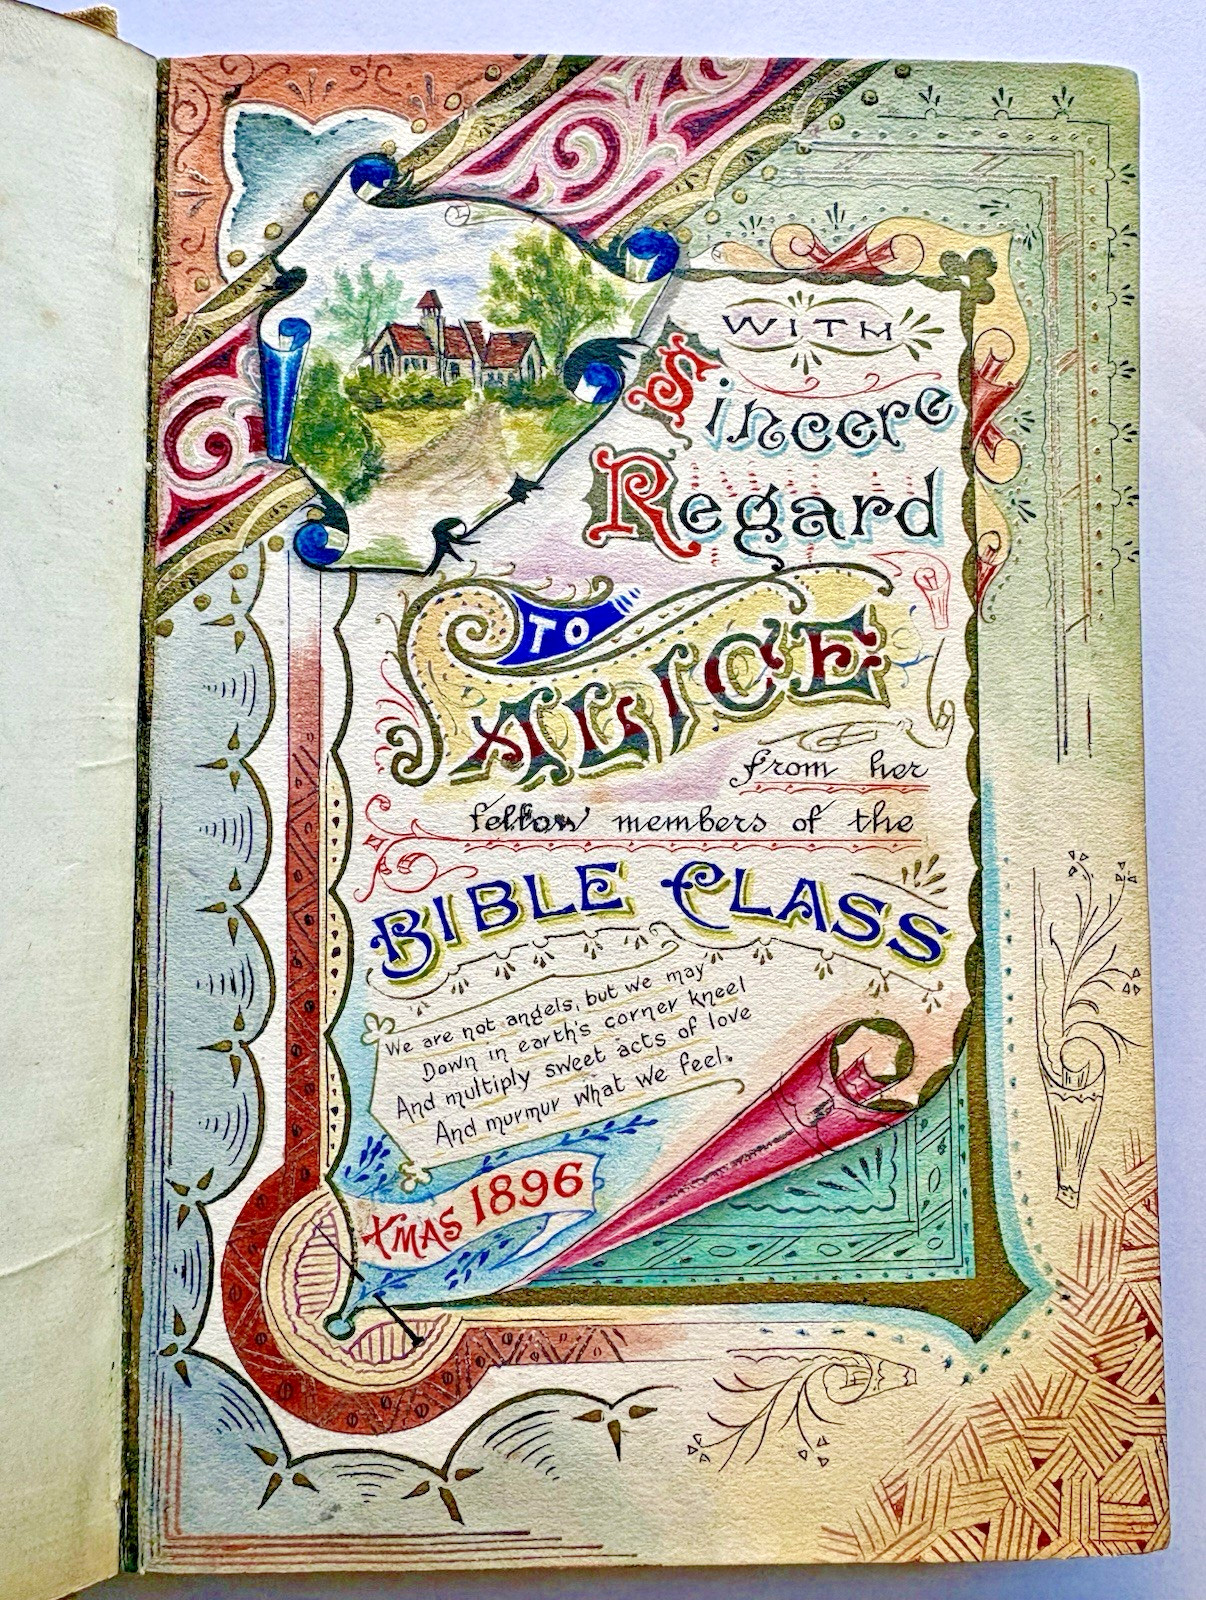 WITH
Sincere
Regard
TO
ALICE
from her
fellow members of the
BIBLE CLASS
We are not angels, but we may
Down in earth's corner kneel
And multiply sweet acts of love
And murmur what we feel.
XMAS 1896